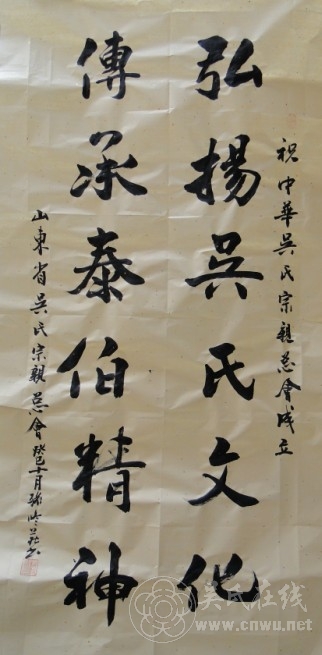 祝中華吳氏宗親总會成立
弘揚吳氏文化
傳承泰伯精神
山東省吳氏宗親总會癸巳十月
吴氏在线
www.cnwu.net